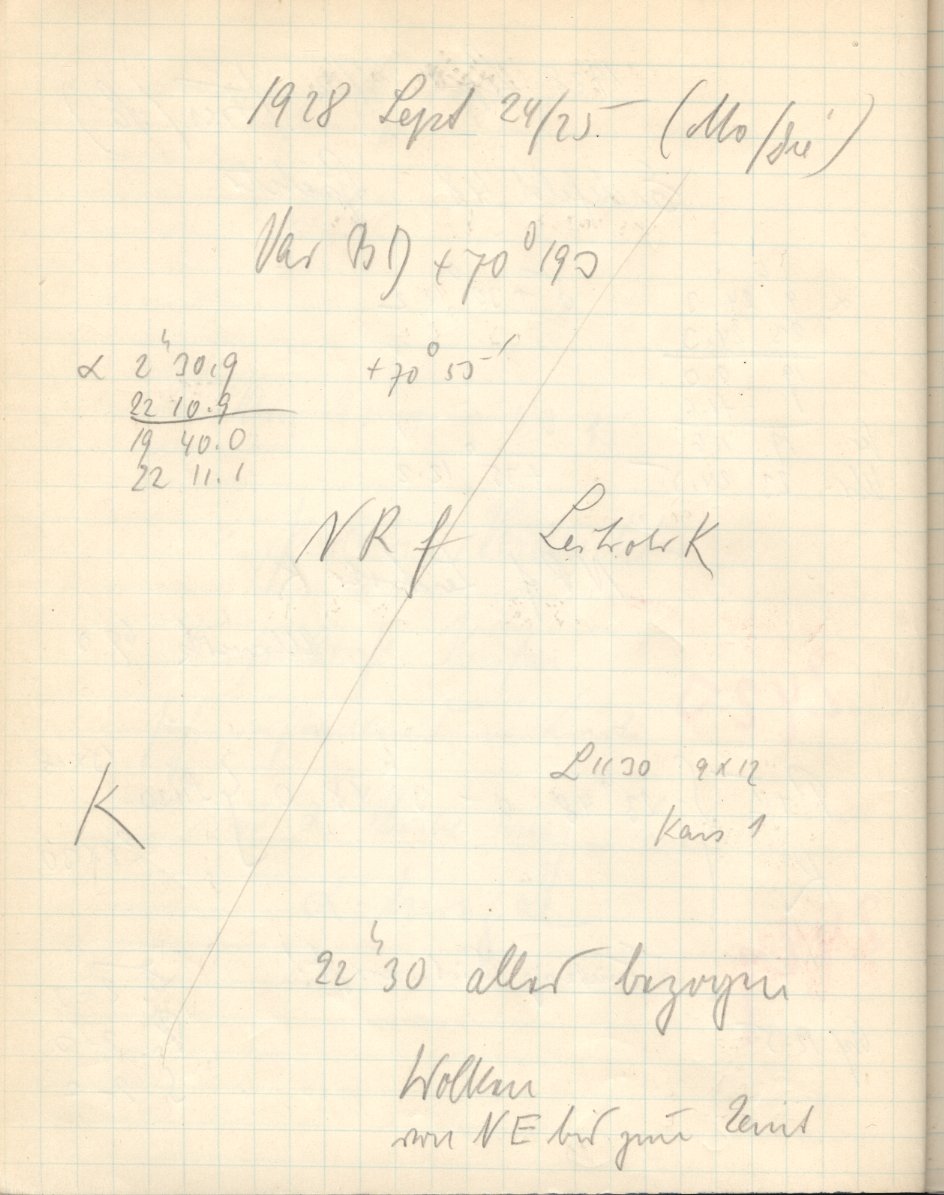 1928 Sept 24/25 (Mo/Die)
Var BD +70° 193
α 2ʰ 30.9 +70° 55′
22 10.9
19 40.0
22 11.1
NR f Leitrohr K
L 1130 9x12
K Kass 1
22ʰ 30 alles bezogen
Wolken
von NE bis zum Zenit